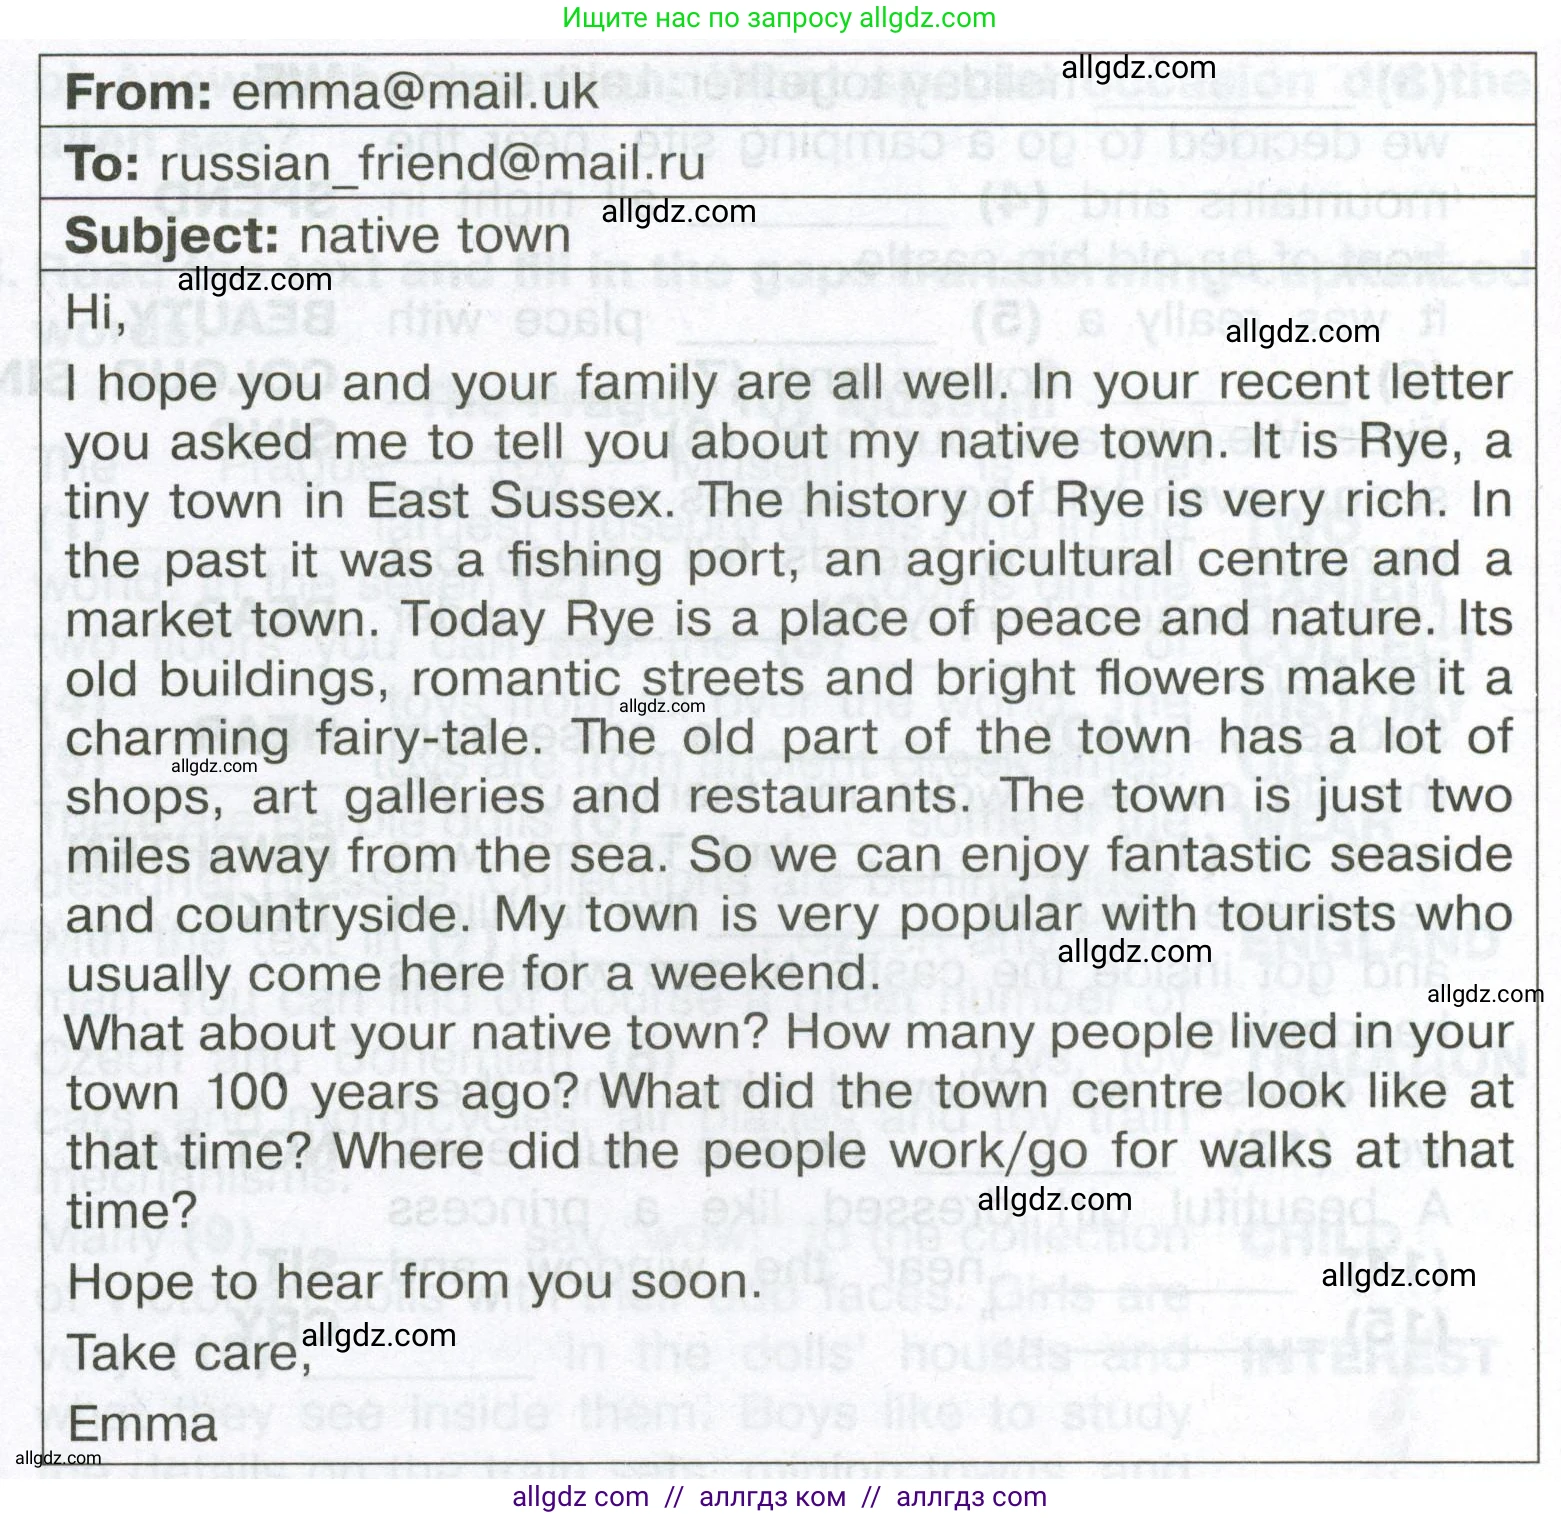 Ищите нас по запросу allgdz.com
allgdz.com
From: emma@mail.uk
To: russian_friend@mail.ru
allgdz.com
Subject: native town
allgdz.com
Hi,
allgdz.com
I hope you and your family are all well. In your recent letter
you asked me to tell you about my native town. It is Rye, a
tiny town in East Sussex. The history of Rye is very rich. In
the past it was a fishing port, an agricultural centre and a
market town. Today Rye is a place of peace and nature. Its
old buildings, romantic streets and bright flowers make it a
allgdz.com
charming fairy-tale. The old part of the town has a lot of
allgdz.com
shops, art galleries and restaurants. The town is just two
miles away from the sea. So we can enjoy fantastic seaside
and countryside. My town is very popular with tourists who
allgdz.com
usually come here for a weekend.
allgdz.com
What about your native town? How many people lived in your
town 100 years ago? What did the town centre look like at
that time? Where did the people work/go for walks at that
allgdz.com
time?
Hope to hear from you soon.
allgdz.com
allgdz.com
Take care,
Emma
allgdz.com
allgdz com // аллгдз ком // аллгдз com